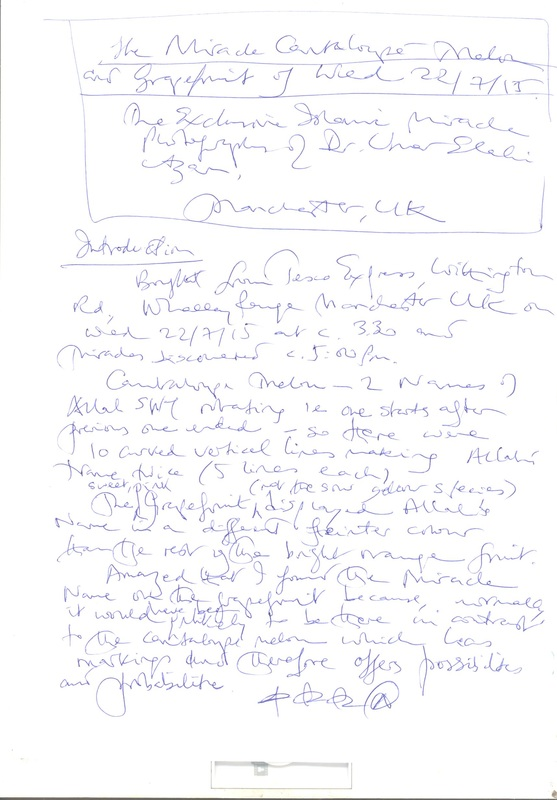 The Miracle Cantaloupe Melon
and Grapefruit of Wed 22/7/15.
The Exclusive Islamic Miracle
Photographs of Dr. Umar Elahi
Azam,
Manchester, UK
Introduction
Bought from Tesco Express, Withington
Rd, Whalley Range Manchester UK on
Wed 22/7/15 at c. 3.30 and
miracles discovered c. 5:00pm.
Cantaloupe Melon - 2 Names of
Allah SWT rotating ie one starts after
previous one ended - so there were
10 curved vertical lines making Allah's
Name twice (5 lines each)
sweet, pink (not the sour yellow species)
The Grapefruit, displayed Allah's
Name in a different fainter colour
than the rest of the bright orange fruit.
Amazed that I found the Miracle
Name on the grapefruit because, normally
it would have been unlikely to be there in contrast
to the cantaloupe melon which has
markings and therefore offers possibilities
and probabilities